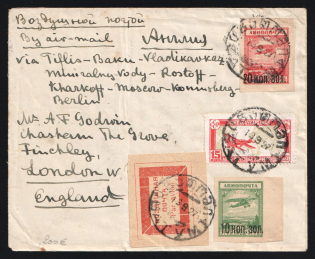 Воздушной почтой
By air-mail Англия
via Tiflis - Baku - Vladikavkaz
Mineralny Vody - Rostoff -
Kharkoff - Moscow - Konnisberg -
Berlin
Mr A F Godwin
The Grove,
Finchley,
London N.
England
АВИОПОЧТА
20 КОП. ЗОЛ.
15
АВИОПОЧТА
10 КОП. ЗОЛ.